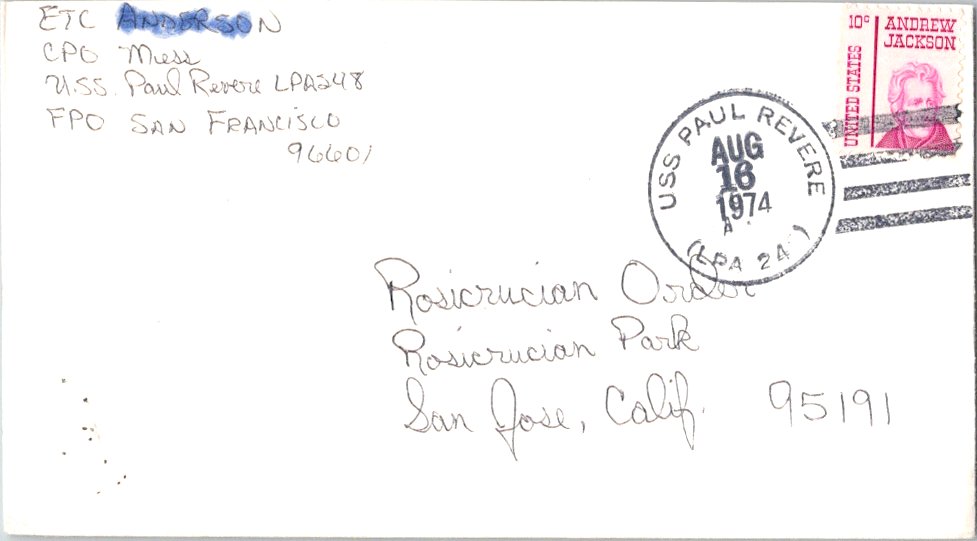 ETC ANDERSON
CPO Mess
U.S.S. Paul Revere LPA248
FPO SAN FRANCISCO
96601
10c ANDREW
JACKSON
UNITED STATES
USS PAUL REVERE
AUG
16
1974
A
(LPA 24 )
Rosicrucian Order
Rosicrucian Park
San Jose, Calif. 95191